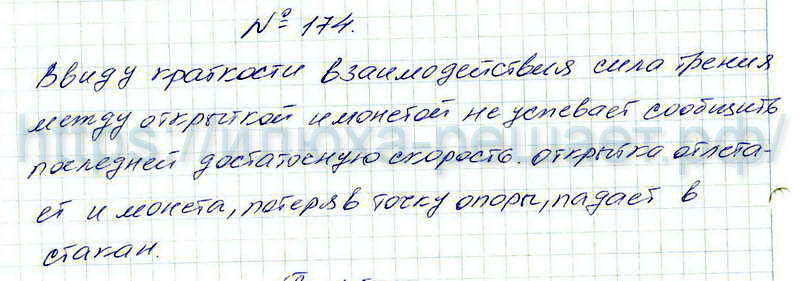 № 174.
Ввиду краткости взаимодействия сила трения
между открыткой и монетой не успевает сообщить
последней достаточную скорость. открытка отлета-
ет и монета, потеряв точку опоры, падает в
стакан.